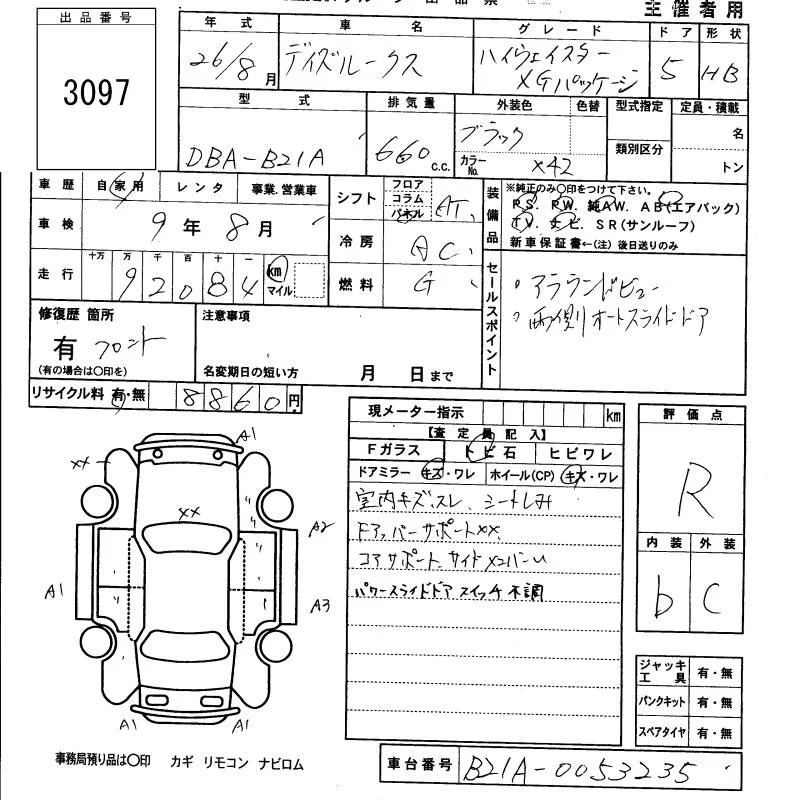 出品番号
3097
主催者用
年式 車名 グレード ドア 形状
26/8月 デイズルークス ハイウェイスター XGパッケージ 5 HB
型式 排気量 外装色 色替 型式指定 定員・積載
DBA-B21A 660c.c. ブラック カラーNo. X42 類別区分 名 トン
車歴 自家用 レンタ 事業.営業車
車検 9年8月
走行 十万 万 千 百 十 一
92084 km マイル
シフト フロア コラム パネル AT
冷房 AC
燃料 G
装備品 ※純正のみ〇印をつけて下さい。
PS. PW. 純AW. AB(エアバック)
TV. ナビ. SR(サンルーフ)
新車保証書←(注) 後日送りのみ
セールスポイント
・アラウンドビュー
・両側オートスライドドア
修復歴 箇所
有 フロント
(有の場合は〇印を)
注意事項
名変期日の短い方 月 日まで
リサイクル料 有・無 8860円
現メーター指示 km
【査定員記入】
Fガラス トビ石 ヒビワレ
ドアミラー キズ・ワレ ホイール(CP) キズ・ワレ
室内キズ、スレ、シートしみ
Fアッパーサポートxx.
コアサポート、サイドメンバーU
パワースライドドアスイッチ不調
評価点
R
内装 外装
b C
ジャッキ工具 有・無
パンクキット 有・無
スペアタイヤ 有・無
A1
xx
xx
A2
A1
A3
A1
A1
事務局預り品は〇印 カギ リモコン ナビロム
車台番号 B21A-0053235